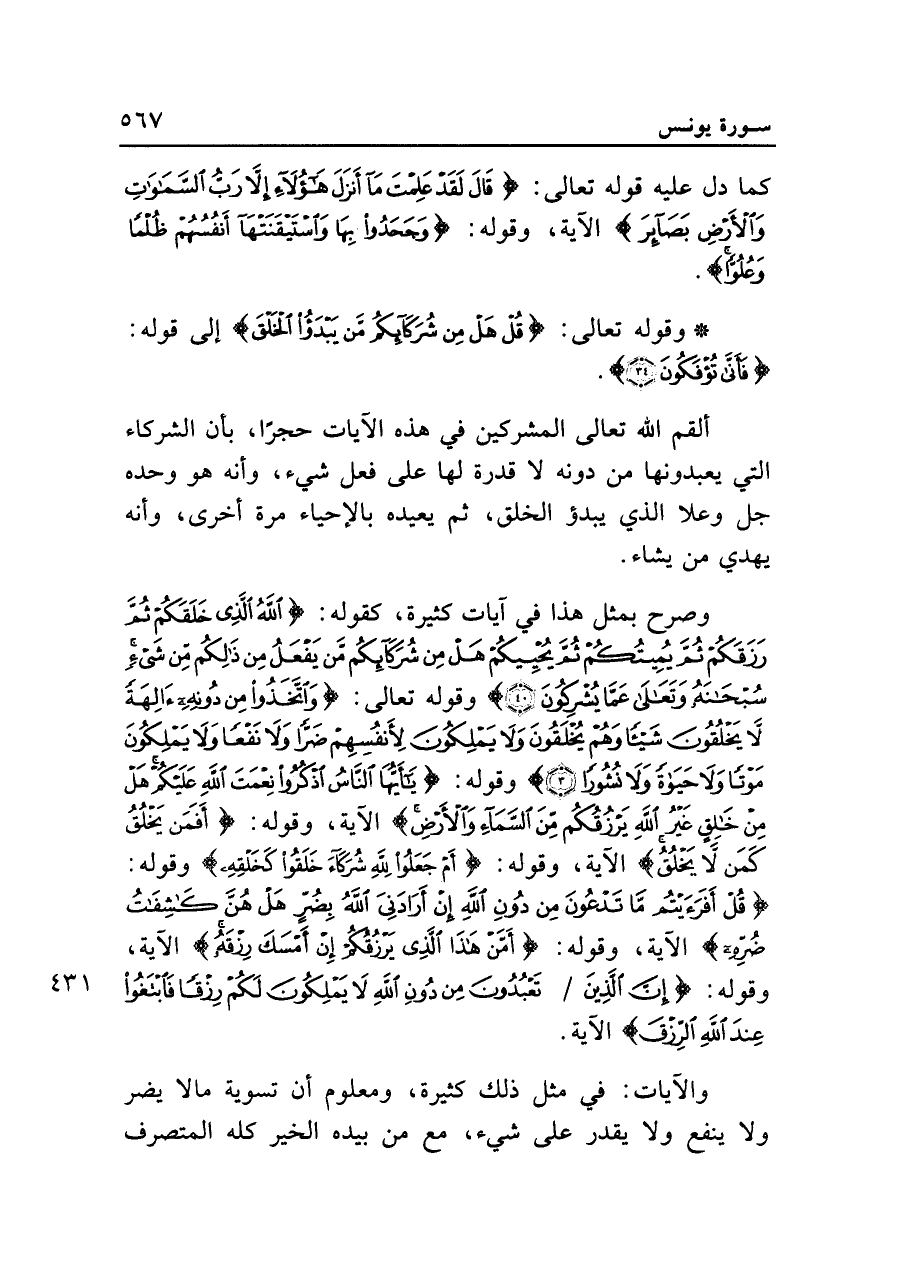 سورة يونس ٥٦٧
كما دل عليه قوله تعالى: ﴿ قَالَ لَقَدْ عَلِمْتَ مَآ أَنزَلَ هَٰٓؤُلَآءِ إِلَّا رَبُّ ٱلسَّمَٰوَٰتِ
وَٱلْأَرْضِ بَصَآئِرَ ﴾ الآية، وقوله: ﴿وَجَحَدُوا۟ بِهَا وَٱسْتَيْقَنَتْهَآ أَنفُسُهُمْ ظُلْمًا
وَعُلُوًّا ۚ﴾ .
* وقوله تعالى: ﴿قُلْ هَلْ مِن شُرَكَآئِكُم مَّن يَبْدَؤُا۟ ٱلْخَلْقَ﴾ إلى قوله:
﴿ فَأَنَّىٰ تُؤْفَكُونَ ٣٤﴾ .
ألقم الله تعالى المشركين في هذه الآيات حجرًا، بأن الشركاء
التي يعبدونها من دونه لا قدرة لها على فعل شيء، وأنه هو وحده
جل وعلا الذي يبدؤ الخلق، ثم يعيده بالإحياء مرة أخرى، وأنه
يهدي من يشاء.
وصرح بمثل هذا في آيات كثيرة، كقوله: ﴿ ٱللَّهُ ٱلَّذِى خَلَقَكُمْ ثُمَّ
رَزَقَكُمْ ثُمَّ يُمِيتُكُمْ ثُمَّ يُحْيِيكُمْ هَلْ مِن شُرَكَآئِكُم مَّن يَفْعَلُ مِن ذَٰلِكُم مِّن شَىْءٍ ۚ
سُبْحَٰنَهُۥ وَتَعَٰلَىٰ عَمَّا يُشْرِكُونَ ٤٠﴾ وقوله تعالى: ﴿ وَٱتَّخَذُوا۟ مِن دُونِهِۦٓ ءَالِهَةً
لَّا يَخْلُقُونَ شَيْـًٔا وَهُمْ يُخْلَقُونَ وَلَا يَمْلِكُونَ لِأَنفُسِهِمْ ضَرًّا وَلَا نَفْعًا وَلَا يَمْلِكُونَ
مَوْتًا وَلَا حَيَوٰةً وَلَا نُشُورًا ٣﴾ وقوله: ﴿ يَٰٓأَيُّهَا ٱلنَّاسُ ٱذْكُرُوا۟ نِعْمَتَ ٱللَّهِ عَلَيْكُمْ ۚ هَلْ
مِنْ خَٰلِقٍ غَيْرُ ٱللَّهِ يَرْزُقُكُم مِّنَ ٱلسَّمَآءِ وَٱلْأَرْضِ ۚ﴾ الآية، وقوله: ﴿ أَفَمَن يَخْلُقُ
كَمَن لَّا يَخْلُقُ ۗ﴾ الآية، وقوله: ﴿ أَمْ جَعَلُوا۟ لِلَّهِ شُرَكَآءَ خَلَقُوا۟ كَخَلْقِهِۦ﴾ وقوله:
﴿ قُلْ أَفَرَءَيْتُم مَّا تَدْعُونَ مِن دُونِ ٱللَّهِ إِنْ أَرَادَنِىَ ٱللَّهُ بِضُرٍّ هَلْ هُنَّ كَٰشِفَٰتُ
ضُرِّهِۦٓ﴾ الآية، وقوله: ﴿ أَمَّنْ هَٰذَا ٱلَّذِى يَرْزُقُكُمْ إِنْ أَمْسَكَ رِزْقَهُۥ ۚ﴾ الآية،
وقوله: ﴿ إِنَّ ٱلَّذِينَ / تَعْبُدُونَ مِن دُونِ ٱللَّهِ لَا يَمْلِكُونَ لَكُمْ رِزْقًا فَٱبْتَغُوا۟ ٤٣١
عِندَ ٱللَّهِ ٱلرِّزْقَ﴾ الآية.
والآيات: في مثل ذلك كثيرة، ومعلوم أن تسوية مالا يضر
ولا ينفع ولا يقدر على شيء، مع من بيده الخير كله المتصرف